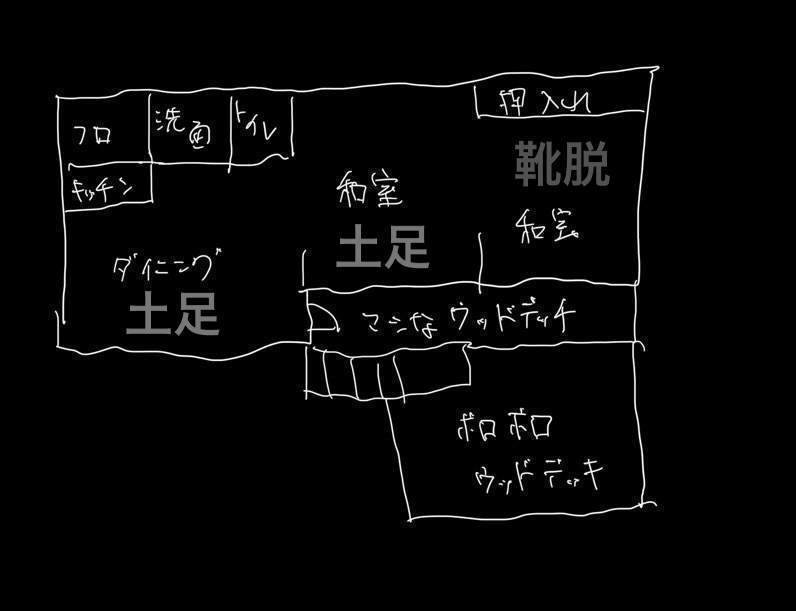 押入れ
フロ
洗面
トイレ
キッチン
靴脱
和室
和室
土足
ダイニング
土足
マシなウッドデッチ
ボロボロ
ウッドデッキ